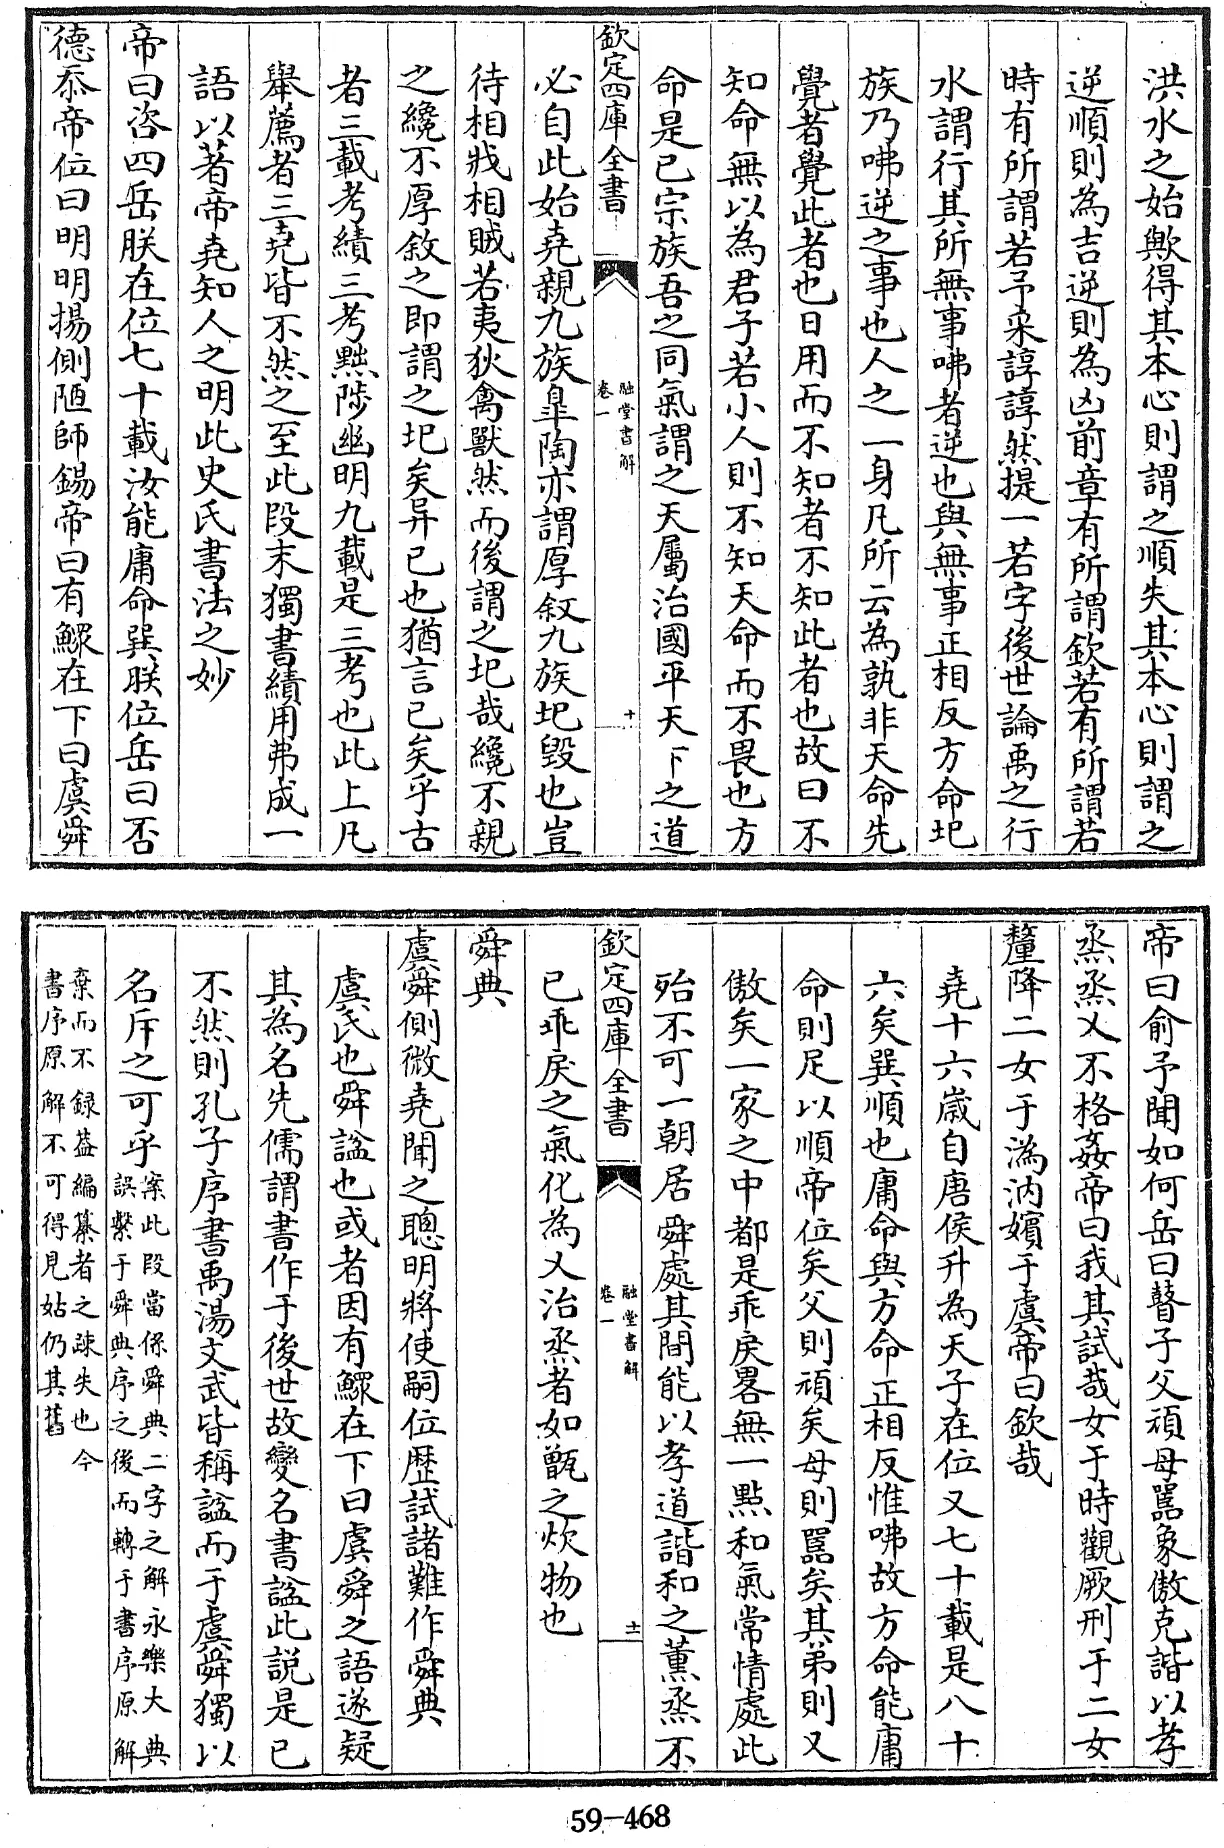 洪水之始歟得其本心則謂之順失其本心則謂之
逆順則為吉逆則為凶前章有所謂欽若有所謂若
時有所謂若予采諄諄然提一若字後世論禹之行
水謂行其所無事咈者逆也與無事正相反方命圯
族乃咈逆之事也人之一身凡所云為孰非天命先
覺者覺此者也日用而不知者不知此者也故曰不
知命無以為君子若小人則不知天命而不畏也方
命是已宗族吾之同氣謂之天屬治國平天下之道
欽定四庫全書
融堂書解
卷一
十
必自此始堯親九族皐陶亦謂厚叙九族圯毀也豈
待相戕相賊若夷狄禽獸然而後謂之圯哉纔不親
之纔不厚敘之即謂之圯矣异已也猶言已矣乎古
者三載考績三考黜陟幽明九載是三考也此上凡
舉薦者三堯皆不然之至此段末獨書績用弗成一
語以著帝堯知人之明此史氏書法之妙
帝曰咨四岳朕在位七十載汝能庸命巽朕位岳曰否
德忝帝位曰明明揚側陋師錫帝曰有鰥在下曰虞舜
帝曰俞予聞如何岳曰瞽子父頑母嚚象傲克諧以孝
烝烝乂不格姦帝曰我其試哉女于時觀厥刑于二女
釐降二女于溈汭嬪于虞帝曰欽哉
堯十六歲自唐侯升為天子在位又七十載是八十
六矣巽順也庸命與方命正相反惟咈故方命能庸
命則足以順帝位矣父則頑矣母則嚚矣其弟則又
傲矣一家之中都是乖戾畧無一點和氣常情處此
殆不可一朝居舜處其間能以孝道諧和之薰烝不
欽定四庫全書
融堂書解
卷一
十一
已乖戾之氣化為乂治烝者如甑之炊物也
舜典
虞舜側微堯聞之聰明將使嗣位歴試諸難作舜典
虞氏也舜諡也或者因有鰥在下曰虞舜之語遂疑
其為名先儒謂書作于後世故變名書諡此説是已
不然則孔子序書禹湯文武皆稱諡而于虞舜獨以
名斥之可乎案此段當係舜典二字之解永樂大典
誤繫于舜典序之後而轉于書序原解
棄而不録葢編纂者之疎失也今
書序原解不可得見姑仍其舊
59-468